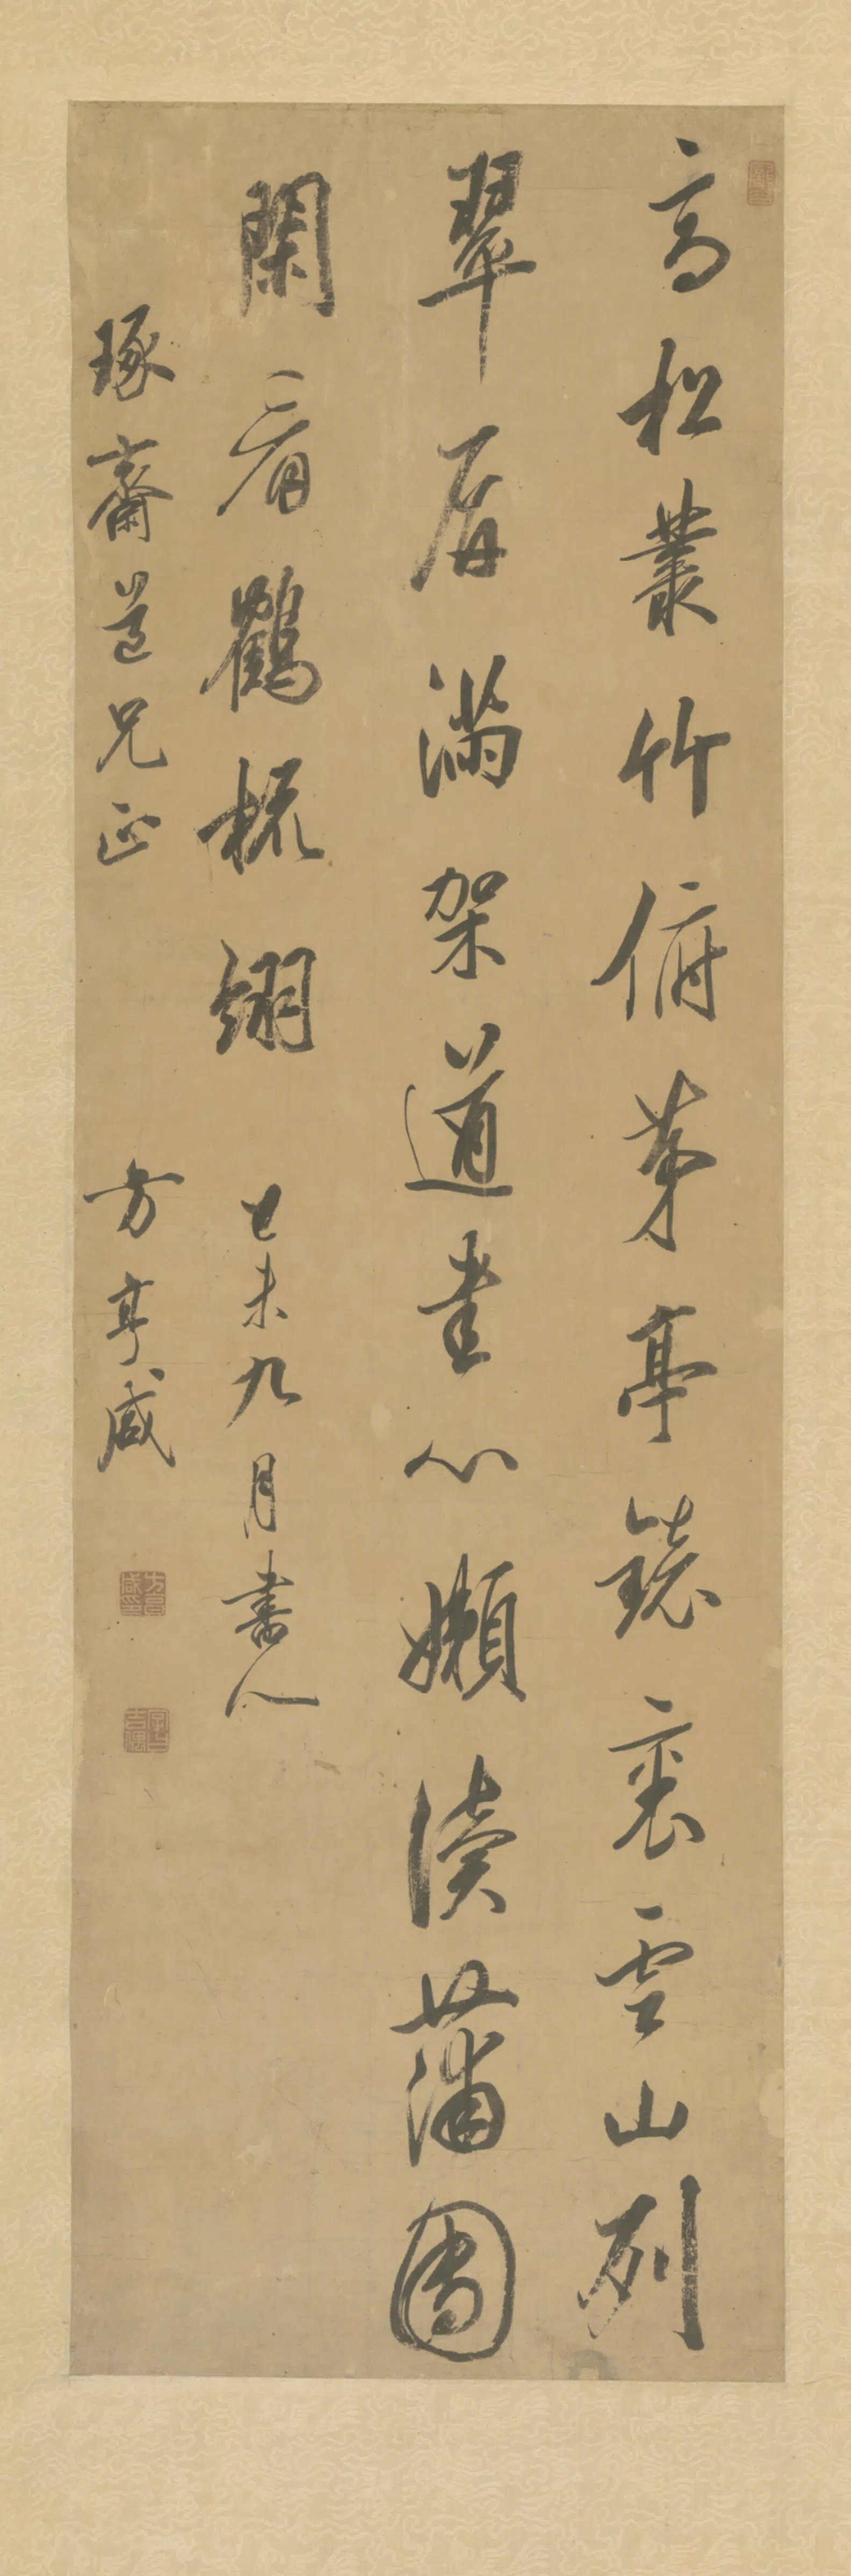 高松叢竹俯茅亭鏡裏雲山列
翠屏滿架道書心嬾讀蒲團
閑看鶴梳翎 己未九月書似
琢齋道兄正 方亨咸